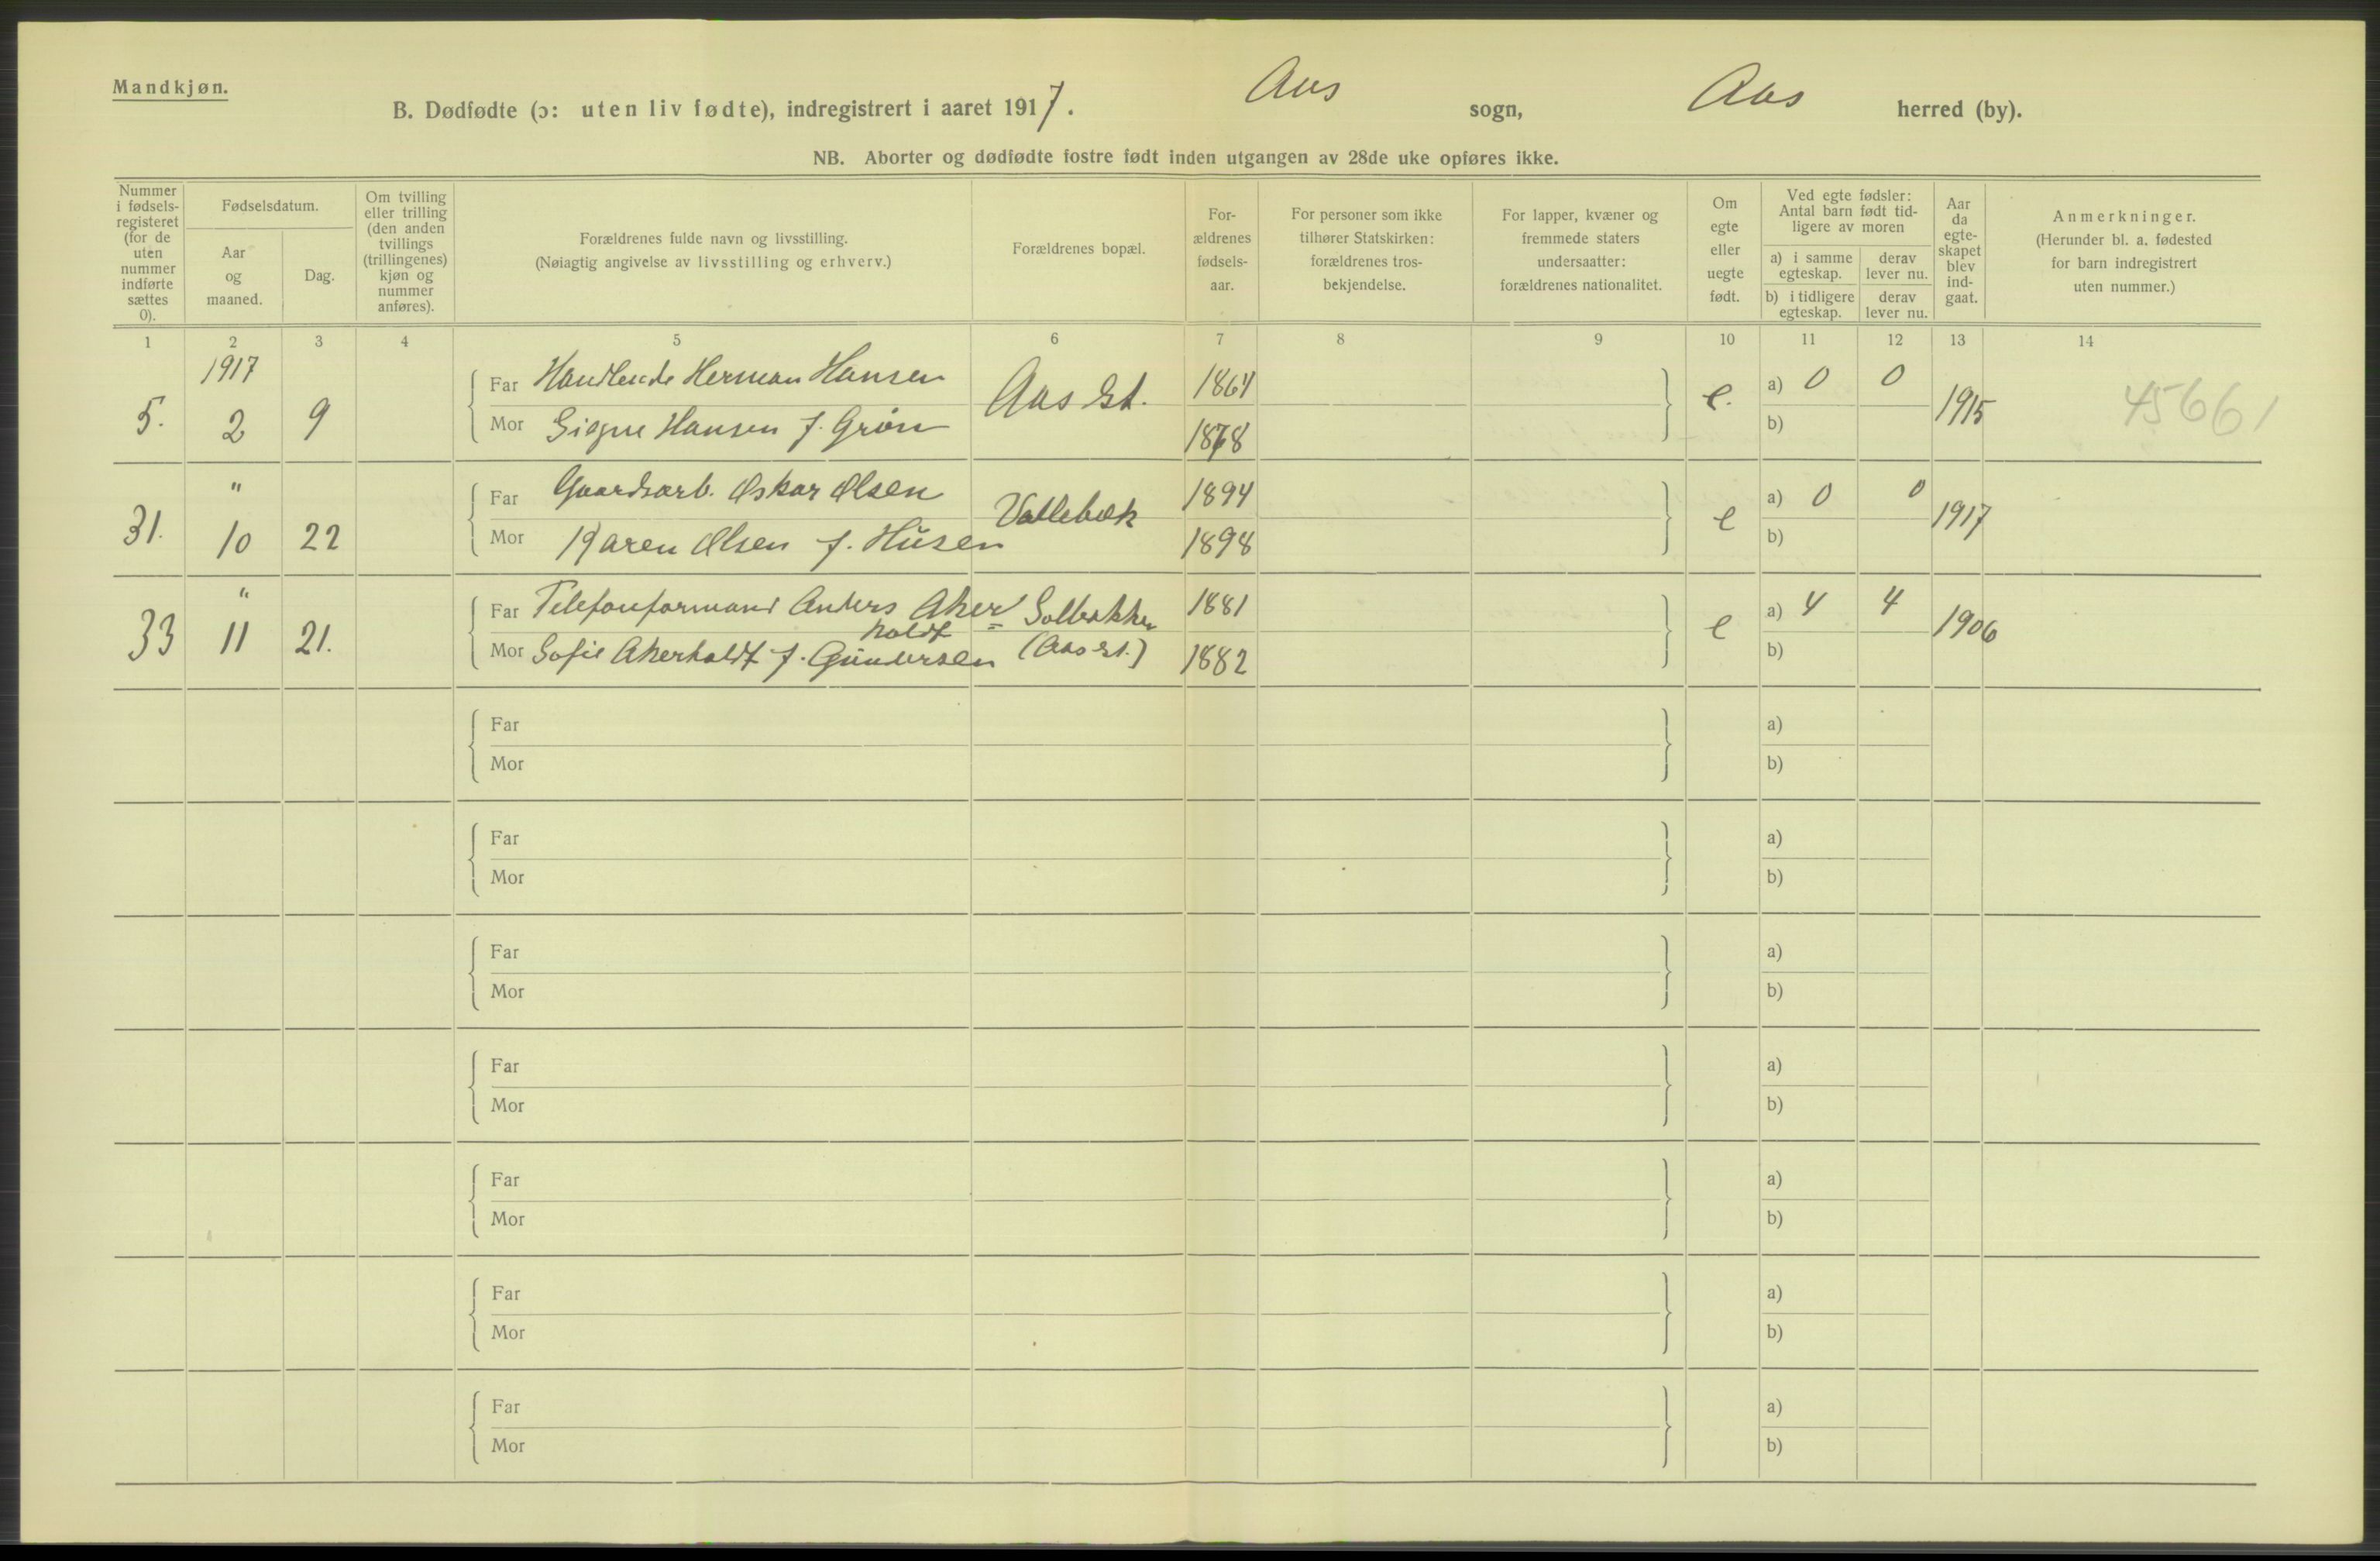 Mandkjøn.
B. Dødfødte (ɔ: uten liv fødte), indregistrert i aaret 1917. Aas sogn, Aas herred (by).
NB. Aborter og dødfødte fostre født inden utgangen av 28de uke opføres ikke.
Nummer i fødsels-registeret (for de uten nummer indførte sættes 0).
Fødselsdatum.
Aar og maaned.
Dag.
Om tvilling eller trilling (den anden tvillings (trillingenes) kjøn og nummer anføres).
Forældrenes fulde navn og livsstilling.
(Nøiagtig angivelse av livsstilling og erhverv.)
Forældrenes bopæl.
For-ældrenes fødsels-aar.
For personer som ikke tilhører Statskirken: forældrenes tros-bekjendelse.
For lapper, kvæner og fremmede staters undersaatter: forældrenes nationalitet.
Om egte eller uegte født.
Ved egte fødsler: Antal barn født tid-ligere av moren
a) i samme egteskap.
derav lever nu.
b) i tidligere egteskap.
derav lever nu.
Aar da egte-skapet blev ind-gaat.
Anmerkninger.
(Herunder bl. a. fødested for barn indregistrert uten nummer.)
1 2 3 4 5 6 7 8 9 10 11 12 13 14
1917
5. 2 9
Far Handlende Herman Hansen Aas st. 1864 e. a) 0 0 1915 45661
Mor Signe Hansen f. Grøn 1878 b)
"
31. 10 22
Far Gaardsarb. Oskar Olsen Vollebæk 1894 e a) 0 0 1917
Mor Karen Olsen f. Husen 1898 b)
"
33 11 21.
Far Telefonformand Anders Aker= Solbakken 1881 e a) 4 4 1906
holdt
Mor Sofie Akerholdt f. Gundersen (Aas st.) 1882 b)
Far a)
Mor b)
Far a)
Mor b)
Far a)
Mor b)
Far a)
Mor b)
Far a)
Mor b)
Far a)
Mor b)
Far a)
Mor b)